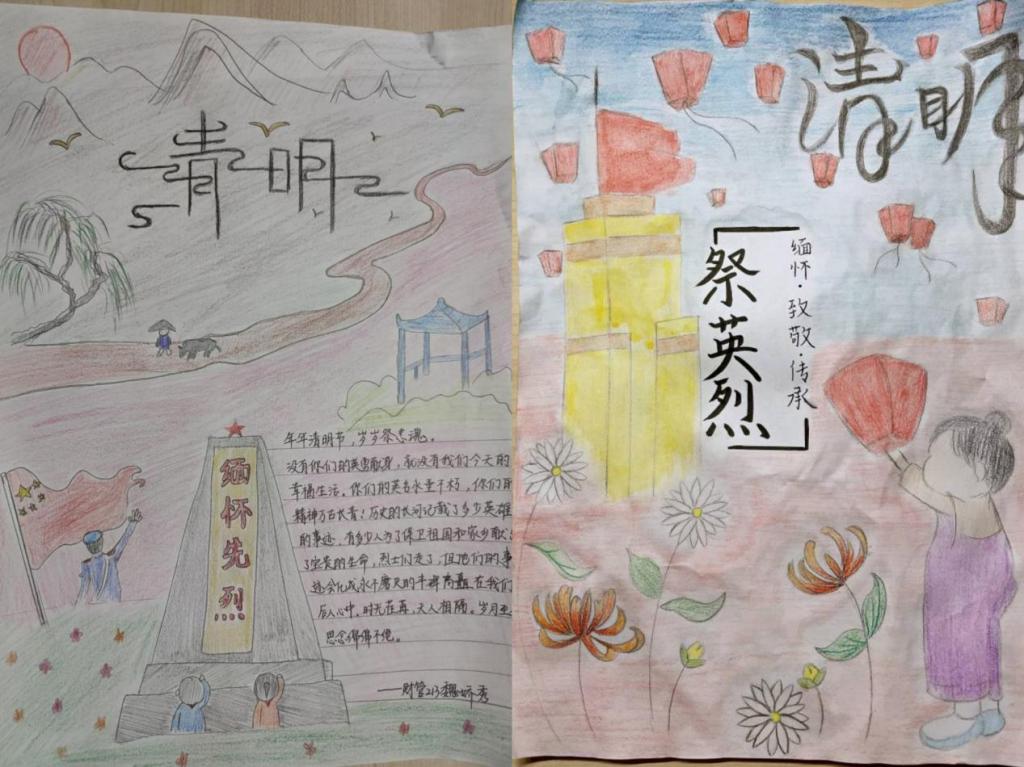 清明
缅怀先烈
年年清明节，岁岁祭忠魂。
没有你们的英勇献身，就没有我们今天的
幸福生活。你们的英名永垂不朽，你们的
精神万古长青！历史的长河记载了多少英雄
的事迹，有多少人为了保卫祖国和家乡献出
了宝贵的生命，烈士们走了，但他们的事
迹会化成永不磨灭的丰碑矗立在我们
后人心中，时光在再，天人相隔。岁月
思念
——财管213
清明
祭英烈
缅怀·致敬·传承